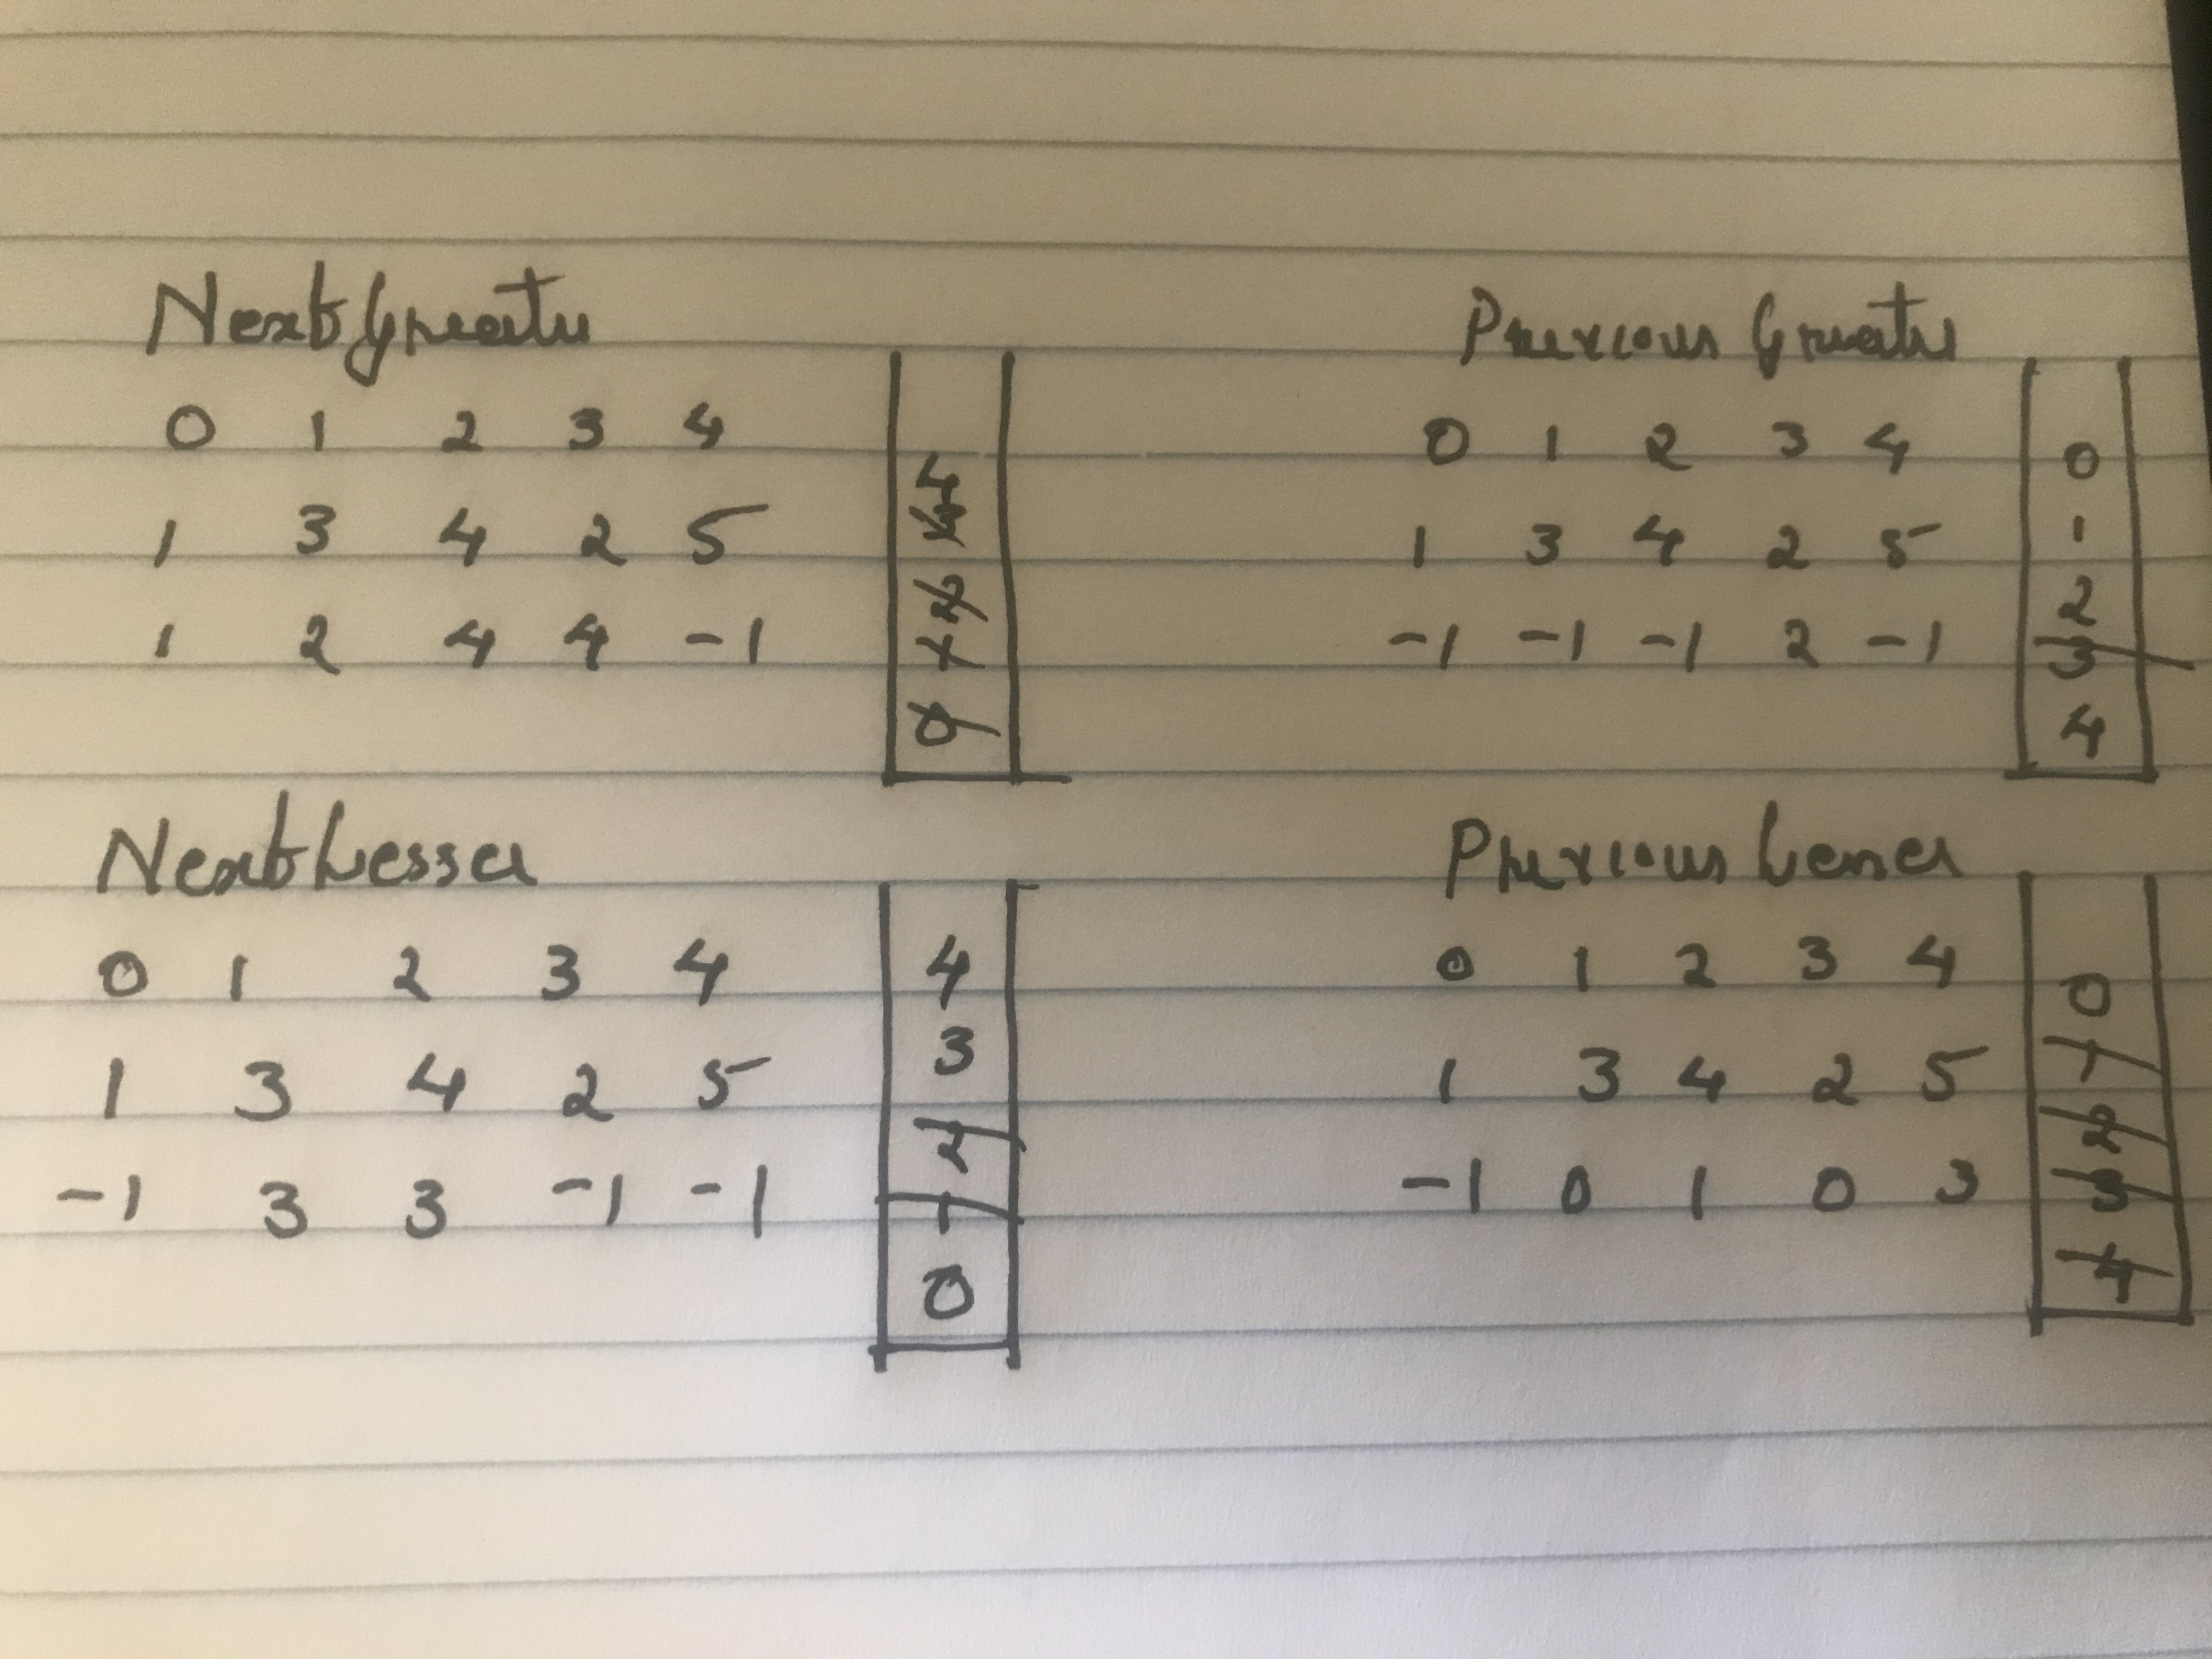 Next Greater
0 1 2 3 4
1 3 4 2 5
1 2 4 4 -1
4
2
1
0
Previous Greater
0 1 2 3 4
1 3 4 2 5
-1 -1 -1 2 -1
0
1
2
3
4
Next Lesser
0 1 2 3 4
1 3 4 2 5
-1 3 3 -1 -1
4
3
2
1
0
Previous Lesser
0 1 2 3 4
1 3 4 2 5
-1 0 1 0 3
0
1
2
3
4